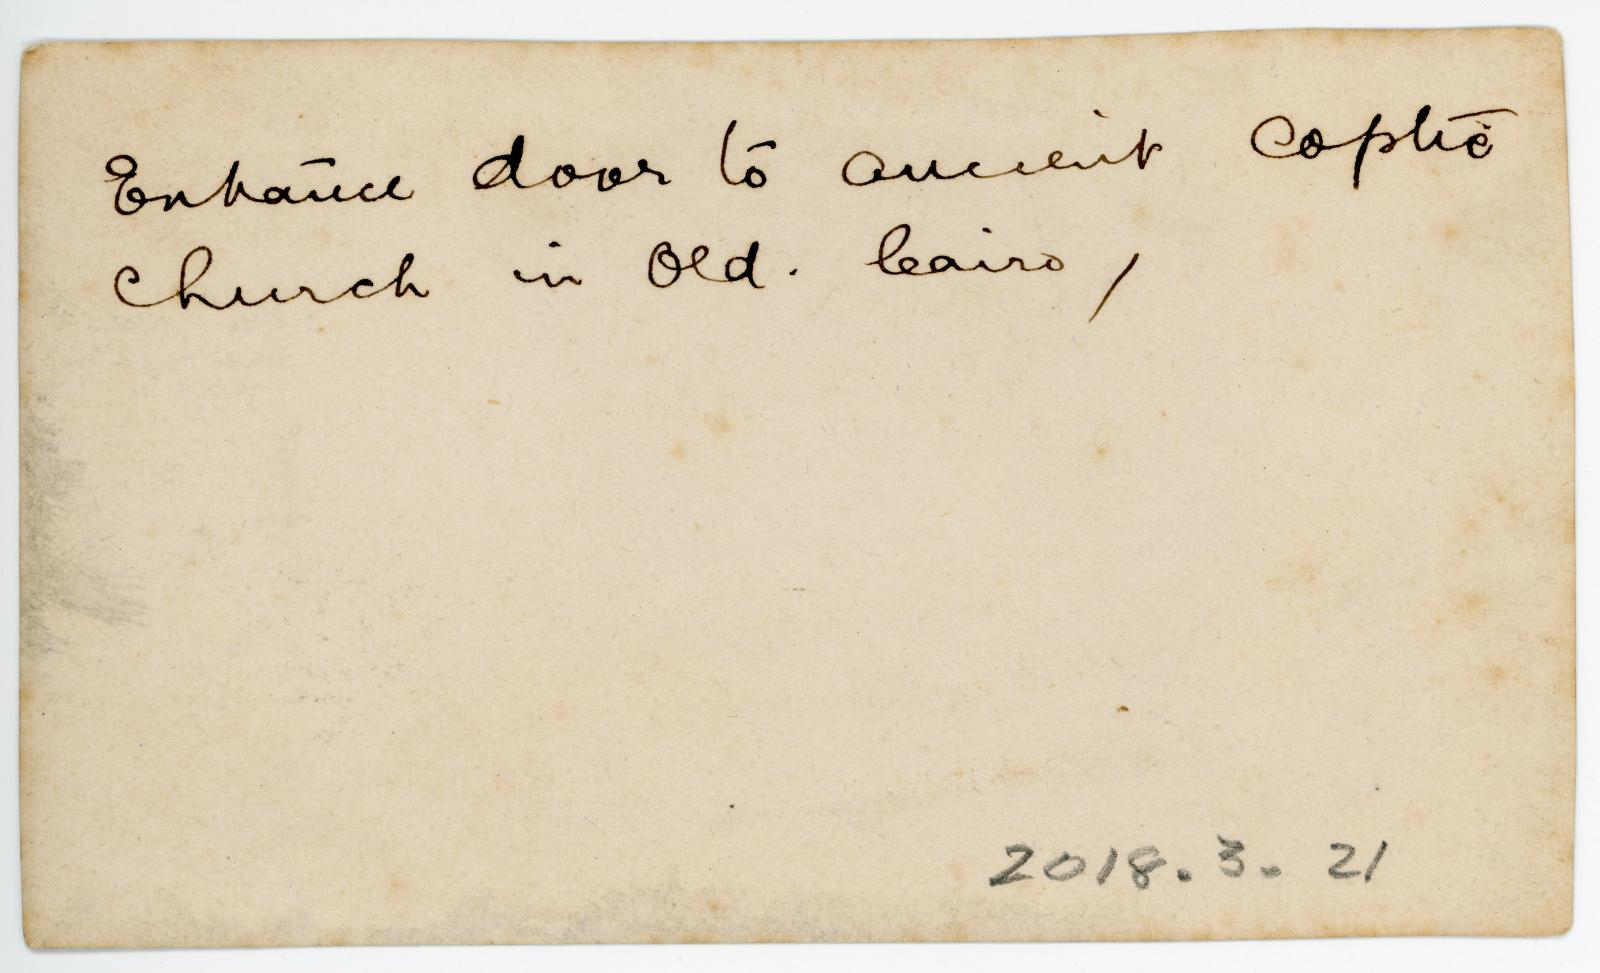 Entrance door to ancient Coptic
Church in Old. Cairo,
2018.3.21